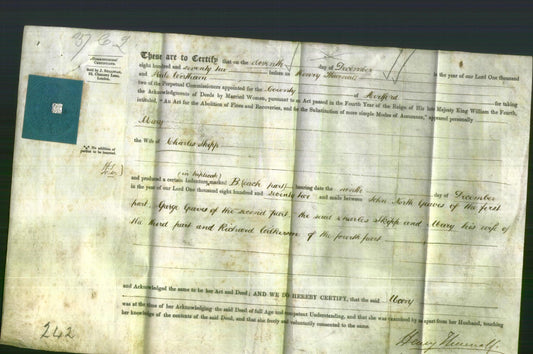 242
Commissioners'
Certificate.
London.
These are to Certify that on the seventh day of December in the year of our Lord One thousand
eight hundred and seventy two before us Henry
and
two of the Perpetual Commissioners appointed for the County of Hertford for taking
the Acknowledgments of Deeds by Married Women, pursuant to an Act passed in the Fourth Year of the Reign of His late Majesty King William the Fourth,
intituled, "An Act for the Abolition of Fines and Recoveries, and for the Substitution of more simple Modes of Assurance," appeared personally
Mary
the Wife of Charles Skipp
(in triplicate)
and produced a certain Indenture, marked B (each part) bearing date the day of December
in the year of our Lord One thousand eight hundred and seventy two and made between John Graves of the first
part George Graves of the second part the said Charles Skipp and Mary his wife of
the third part and Richard of the fourth part
and Acknowledged the same to be her Act and Deed; AND WE DO HEREBY CERTIFY, that the said Mary
was at the time of her Acknowledging the said Deed of full Age and competent Understanding, and that she was examined by us apart from her Husband, touching
her knowledge of the contents of the said Deed, and that she freely and voluntarily consented to the same.
Henry